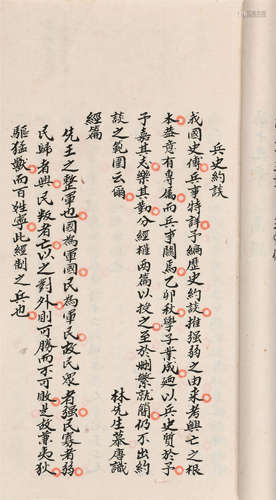 兵史約談
我國史傳兵事特詳予編歷史約談推強弱之由來考興亡之根
本茲意有專屬而兵事闕焉乙卯秋學子業成迺以兵史質於予
予嘉其志樂其勤分經權兩篇以授之至於刪繁就簡仍不出約
談之範圍云爾
林先生慕唐識
經篇
先王之整軍也國為軍國民為軍民故民眾者強民寡者弱
民歸者興民叛者亡以之對外則可勝而不可敗是故薄夷狄
驅猛獸而百姓寧此經制之兵也